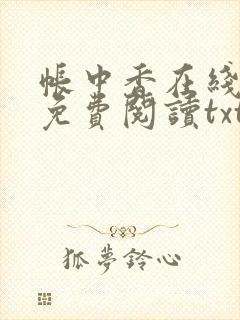 帳中香在綫
免費閱讀txt
狐夢鈴心